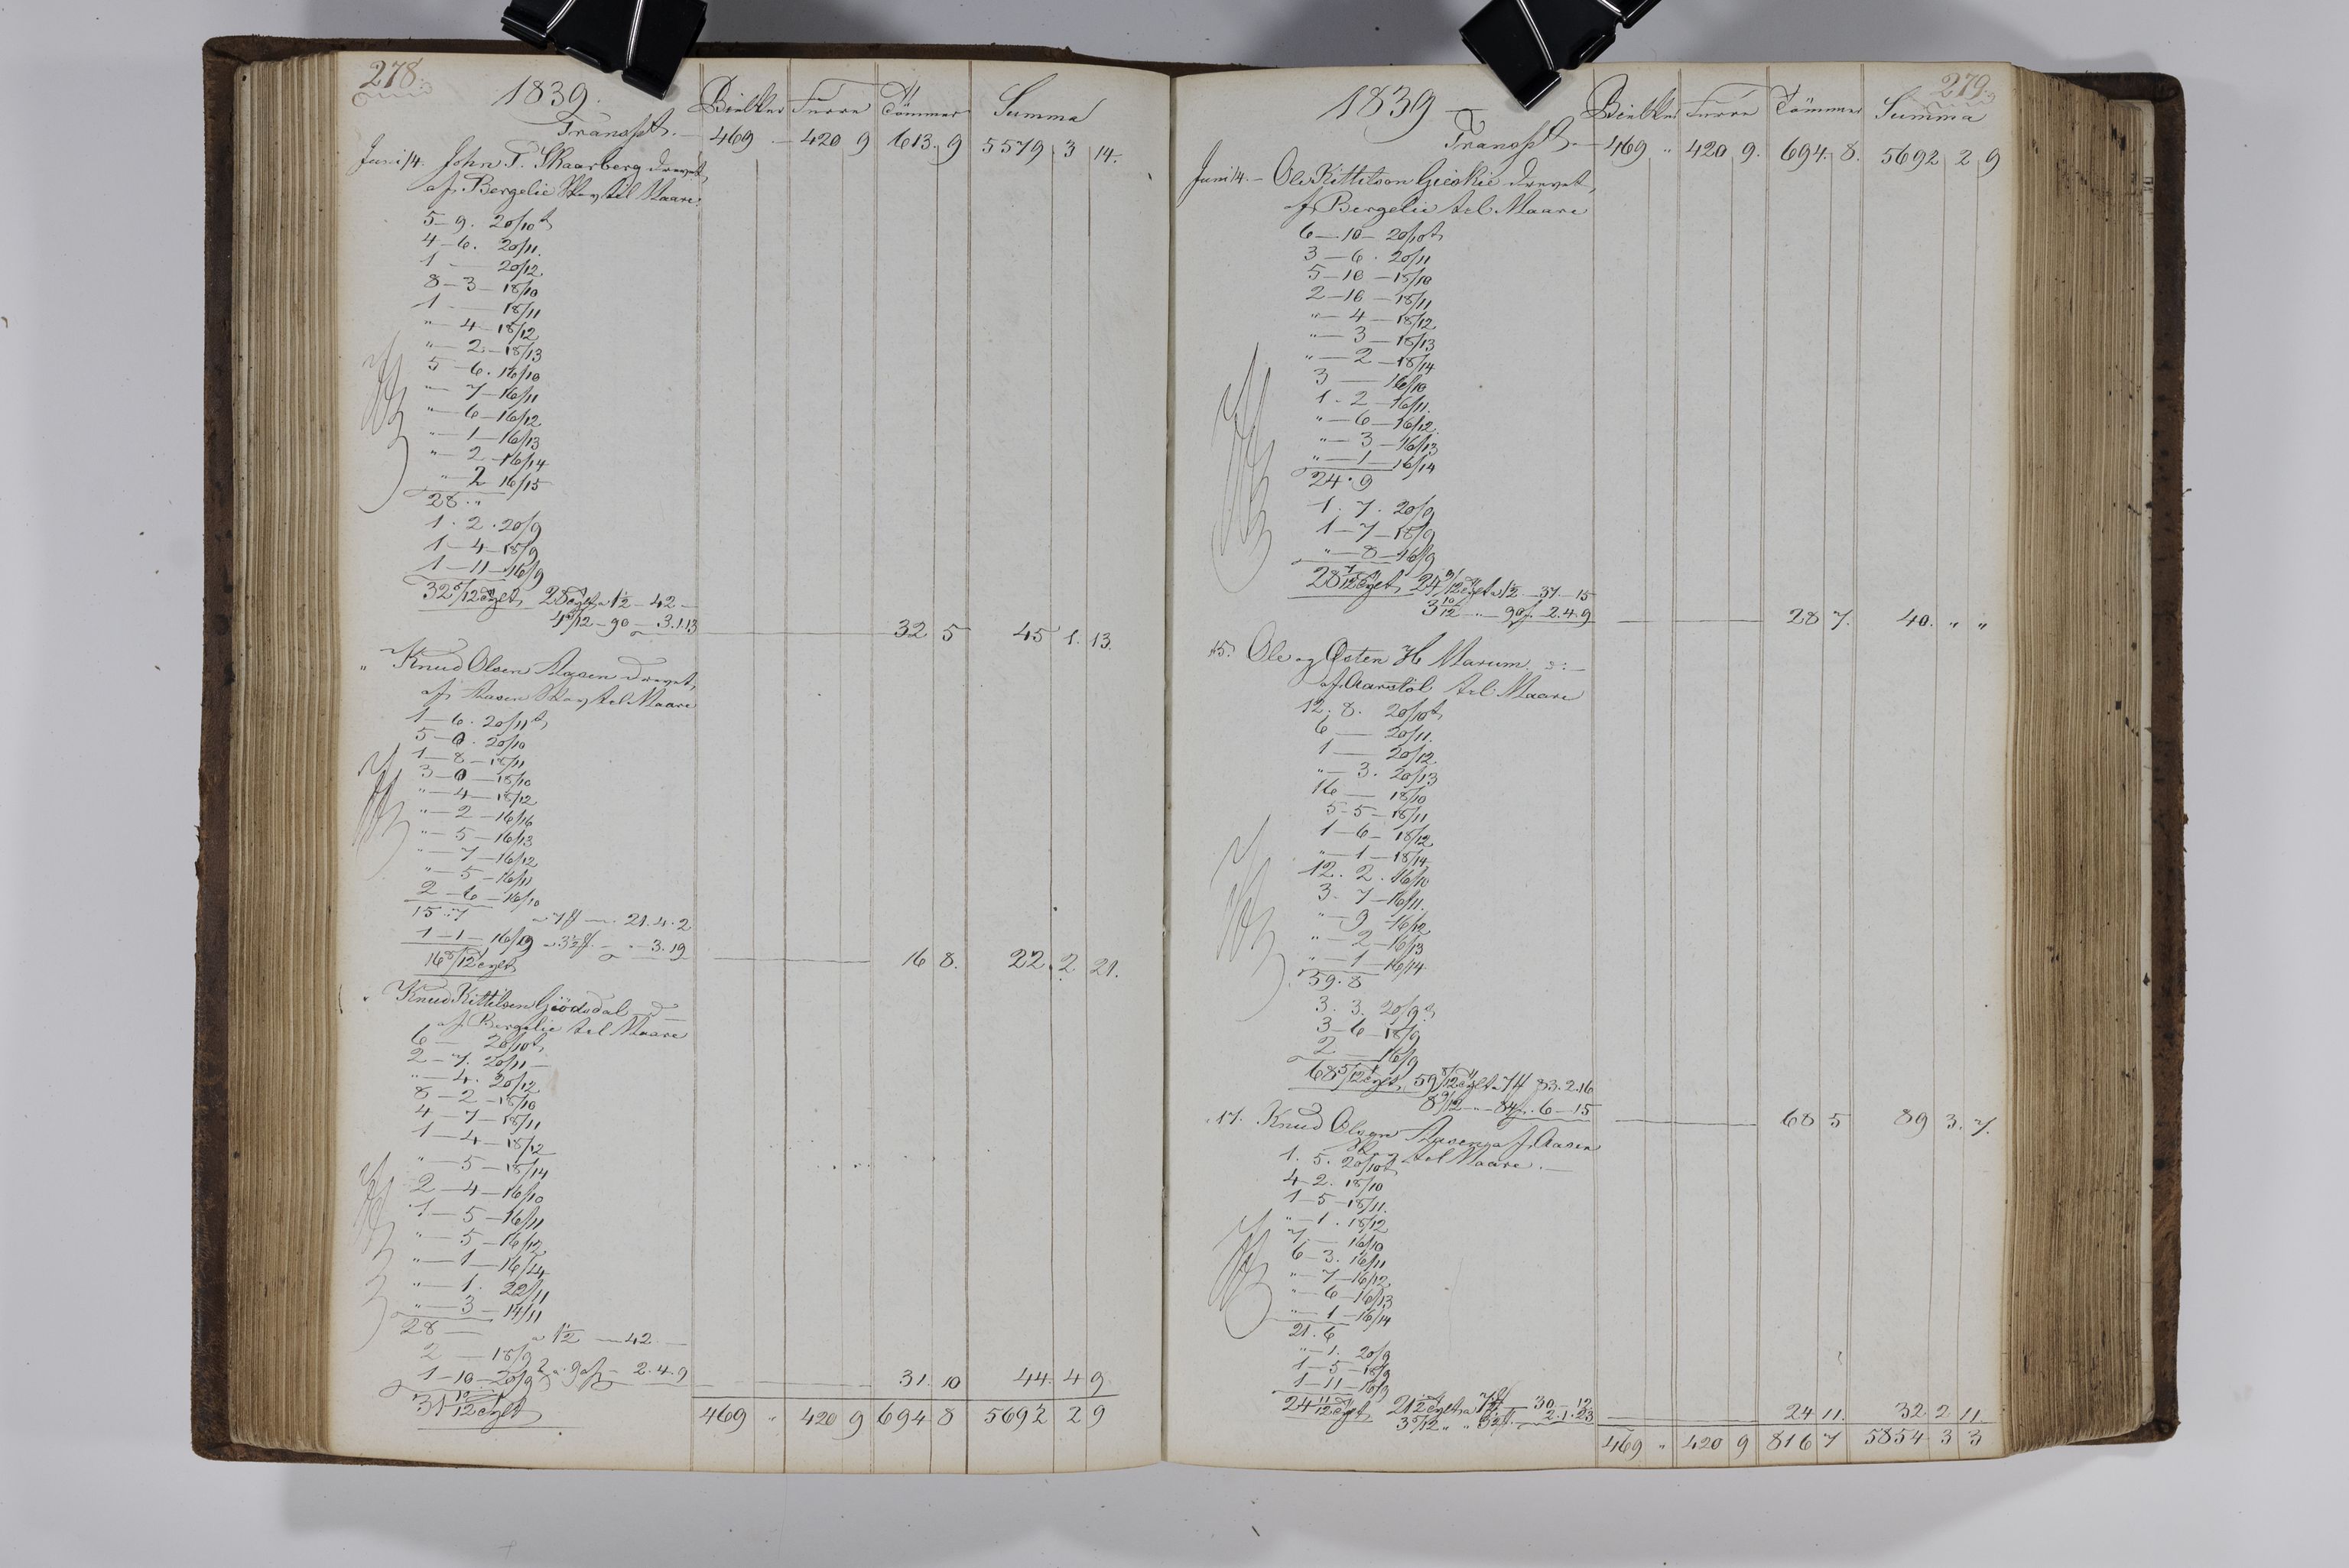 278.
1839.
Bielker Furre Tömmer Summa
Transpt. — 469 — 420 9 613. 9 5579 3 14.
Juni 14. John T. Skaarberg drevet
af Bergelie Skov til Maare.
5-9. 20/10t
4-6. 20/11.
1 — 20/12
8-3-18/10
1 — 18/11
"-4-18/12
"-2-18/13
5-6. 16/10
"-7-16/11
"-6-16/12
"-1-16/13
"-2-16/14
"-2 16/15
28 . "
1. 2. 20/9
1-4-18/9
1-11-16/9
32 5/12 tylt 28 tylt a 1½ - 42 -
4 5/12 - 90 - 3.1.13 32 5 45 1. 13.
" Knud Olsen Aasen drevet,
af Aasen Skov til Maare
1-6. 20/11t
5-0. 20/10
1-8-18/11
3-0-18/10
"-4-18/12
"-2-16/16
"-5-16/13
"-7-16/12
"-5-16/11
2-6-16/10
15. 7 a 7 — 21.4.2
1-1-16/19 a 3½ — " 3.19
16 8/12 tylt 16 8. 22. 2 21.
" Knud Kittilsen Giösdal d —
af Bergelie til Maare
6 — 20/10t
2-7. 20/11 —
"-4. 20/12
8-2-18/10
4-7-18/11
1-4-18/12
"-5-18/14
2-4-16/10
1-5-16/11
"-5-16/12
"-1-16/14
"-1. 22/11
"-3-14/11
28 — a 1½ — 42 —
2 — 18/9
1-10-20/9 a 90 - 2.4.9 31. 10 44. 4 9
31 10/12 tylt
469 " 420 9 694 8 5692 2 9
279.
1839
Bielker Furre Tömmer Summa
Transpt. — 469 " 420 9. 694. 8. 5692 2 9
Juni 14. - Ole Kittilson Gieskie drevet,
af Bergelie til Maare
6-10-20/10t
3-6. 20/11
5-10-18/10
2-10-18/11
"-4-18/12
"-3-18/13
"-2-18/14
3 — 16/10
1-2-16/11.
"-6-16/12.
"-3-16/13
"-1-16/14
24. 9
1. 7. 20/9
1-7-18/9
"-8-16/9
28 7/12 tylt 24 9/12 tylt a 1½ — 37-15
3 10/12 " — 90. 2.4.9 28 7. 40. " "
15. Ole og Östen H Marum. d: —
af Aarstöl til Maare
12. 8. 20/10t
6 — 20/11.
1 — 20/12
"-3. 20/13
16 — 18/10
5-5-18/11
1-6-18/12
"-1-18/14
12. 2. 16/10
3. 7-16/11.
"-9-16/12
"-2-16/13
"-1-16/14
59. 8
3. 3. 20/9
3-6-18/9
2 — 16/9
68 5/12 tylt, 59 8/12 tylt a 7 83.2.16
8 9/12 " — 84 . 6-15 68 5 89 3. 7.
17. Knud Olsen Aasen af Aasen
Skov til Maare. —
1. 5. 20/10t
4-2. 18/10
1-5-18/11.
"-1. 18/12
7 — 16/10
6-3. 16/11
"-7-16/12
"-6-16/13
"-1-16/14
21. 6
"-1. 20/9
1-5-18/9
1-11-16/9
24 11/12 tylt 21½ tylt a 7 — 30-12
3 5/12 " " 3½ — 2.1.23 24 11. 32 2 11.
469 " 420 9 816 7 5854 3 3